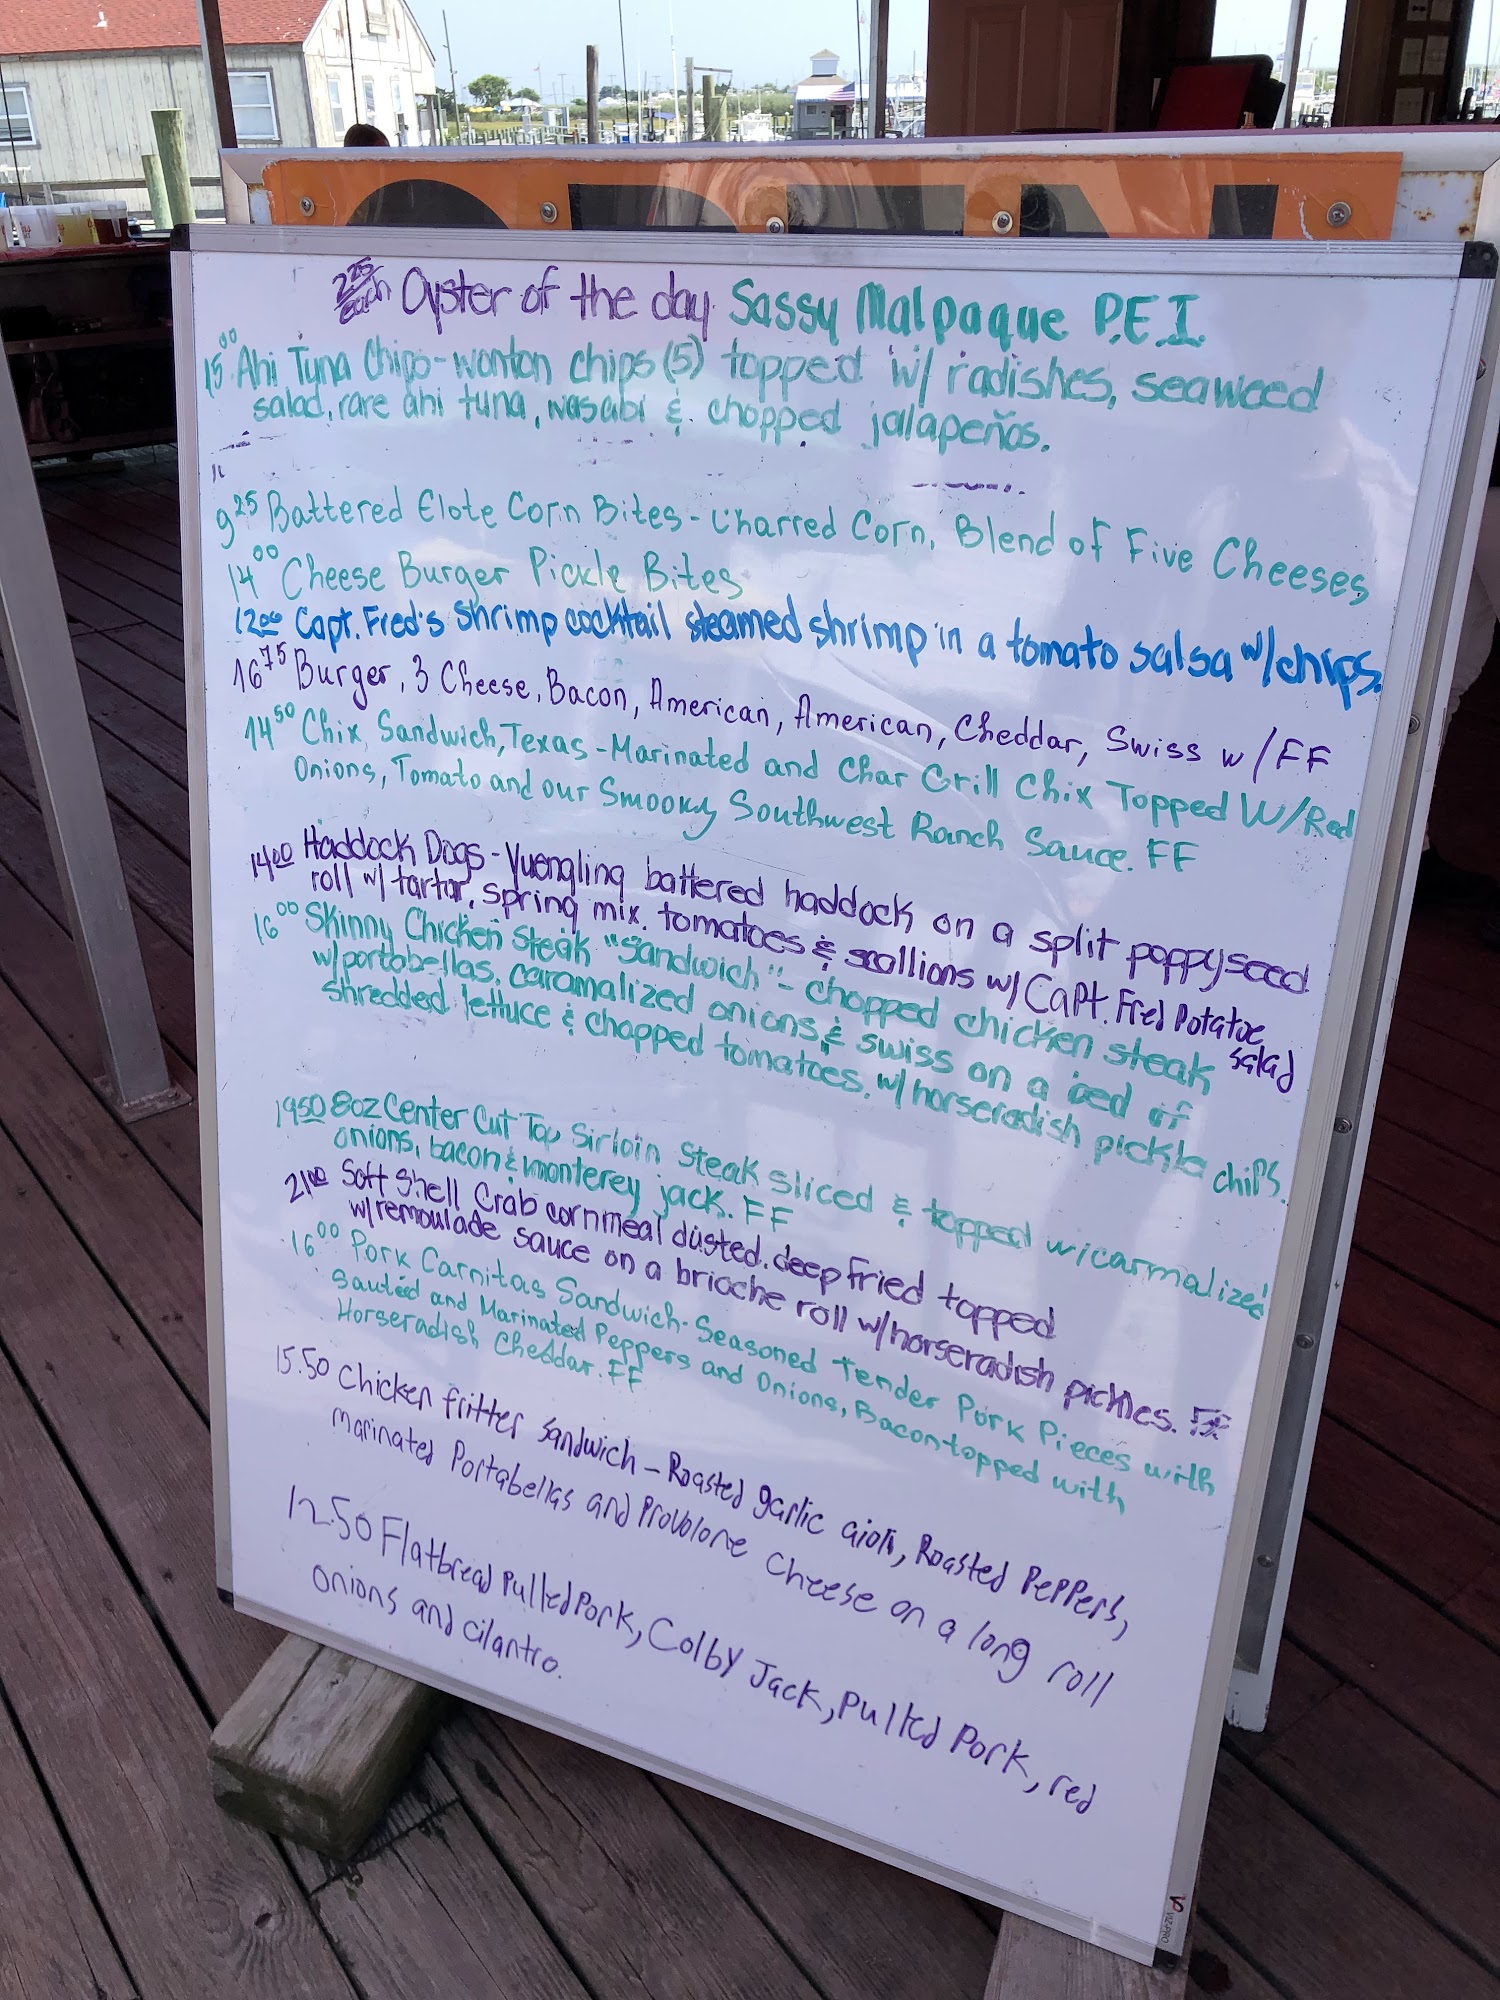 OPEN
2.25 each Oyster of the day Sassy Malpaque P.E.I.
15.00 Ahi Tuna Chips-wonton chips (5) topped w/ radishes, seaweed
salad, rare ahi tuna, wasabi & chopped jalapeños.
9.25 Battered Elote Corn Bites - Charred Corn, Blend of Five Cheeses
14.00 Cheese Burger Pickle Bites
12.00 Capt. Fred's Shrimp cocktail steamed shrimp in a tomato salsa w/chips.
16.75 Burger, 3 Cheese, Bacon, American, American, Cheddar, Swiss w/FF
14.50 Chix Sandwich, Texas - Marinated and Char Grill Chix Topped W/Red
Onions, Tomato and our Smooky Southwest Ranch Sauce. FF
14.00 Haddock Dogs - Yuengling battered haddock on a split poppyseed
roll w/ tartar, spring mix, tomatoes & scallions w/ Capt. Fred Potatoe
salad
16.00 Skinny Chicken Steak "Sandwich" - chopped chicken steak
w/portabellas, caramalized onions, & swiss on a bed of
shredded lettuce & chopped tomatoes. w/horseradish pickle chips.
19.50 8oz Center Cut Top Sirloin Steak sliced & topped w/carmalized
onions, bacon & monterey jack. FF
21.00 Soft Shell Crab cornmeal dusted. deep fried topped
w/remoulade sauce on a brioche roll w/horseradish pickles. FF
16.00 Pork Carnitas Sandwich - Seasoned Tender Pork Pieces with
Sautéd and Marinated Peppers and Onions, Bacon topped with
Horseradish Cheddar. FF
15.50 Chicken fritter Sandwich - Roasted garlic aioli, Roasted Peppers,
Marinated Portabellas and Provolone Cheese on a long roll
12.50 Flatbread Pulled Pork, Colby Jack, Pulled Pork, red
onions and cilantro.
VIZ-PRO